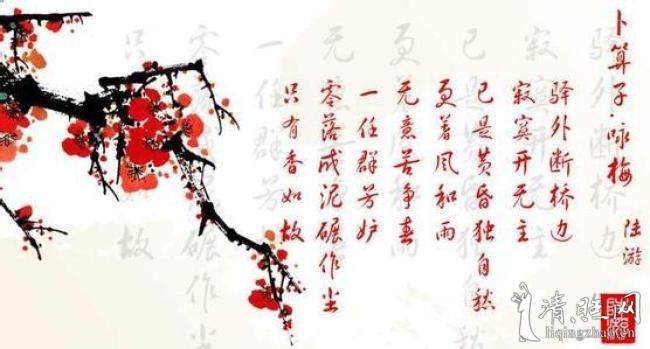 卜算子·咏梅 陆游
驿外断桥边
寂寞开无主
已是黄昏独自愁
更着风和雨
无意苦争春
一任群芳妒
零落成泥碾作尘
只有香如故